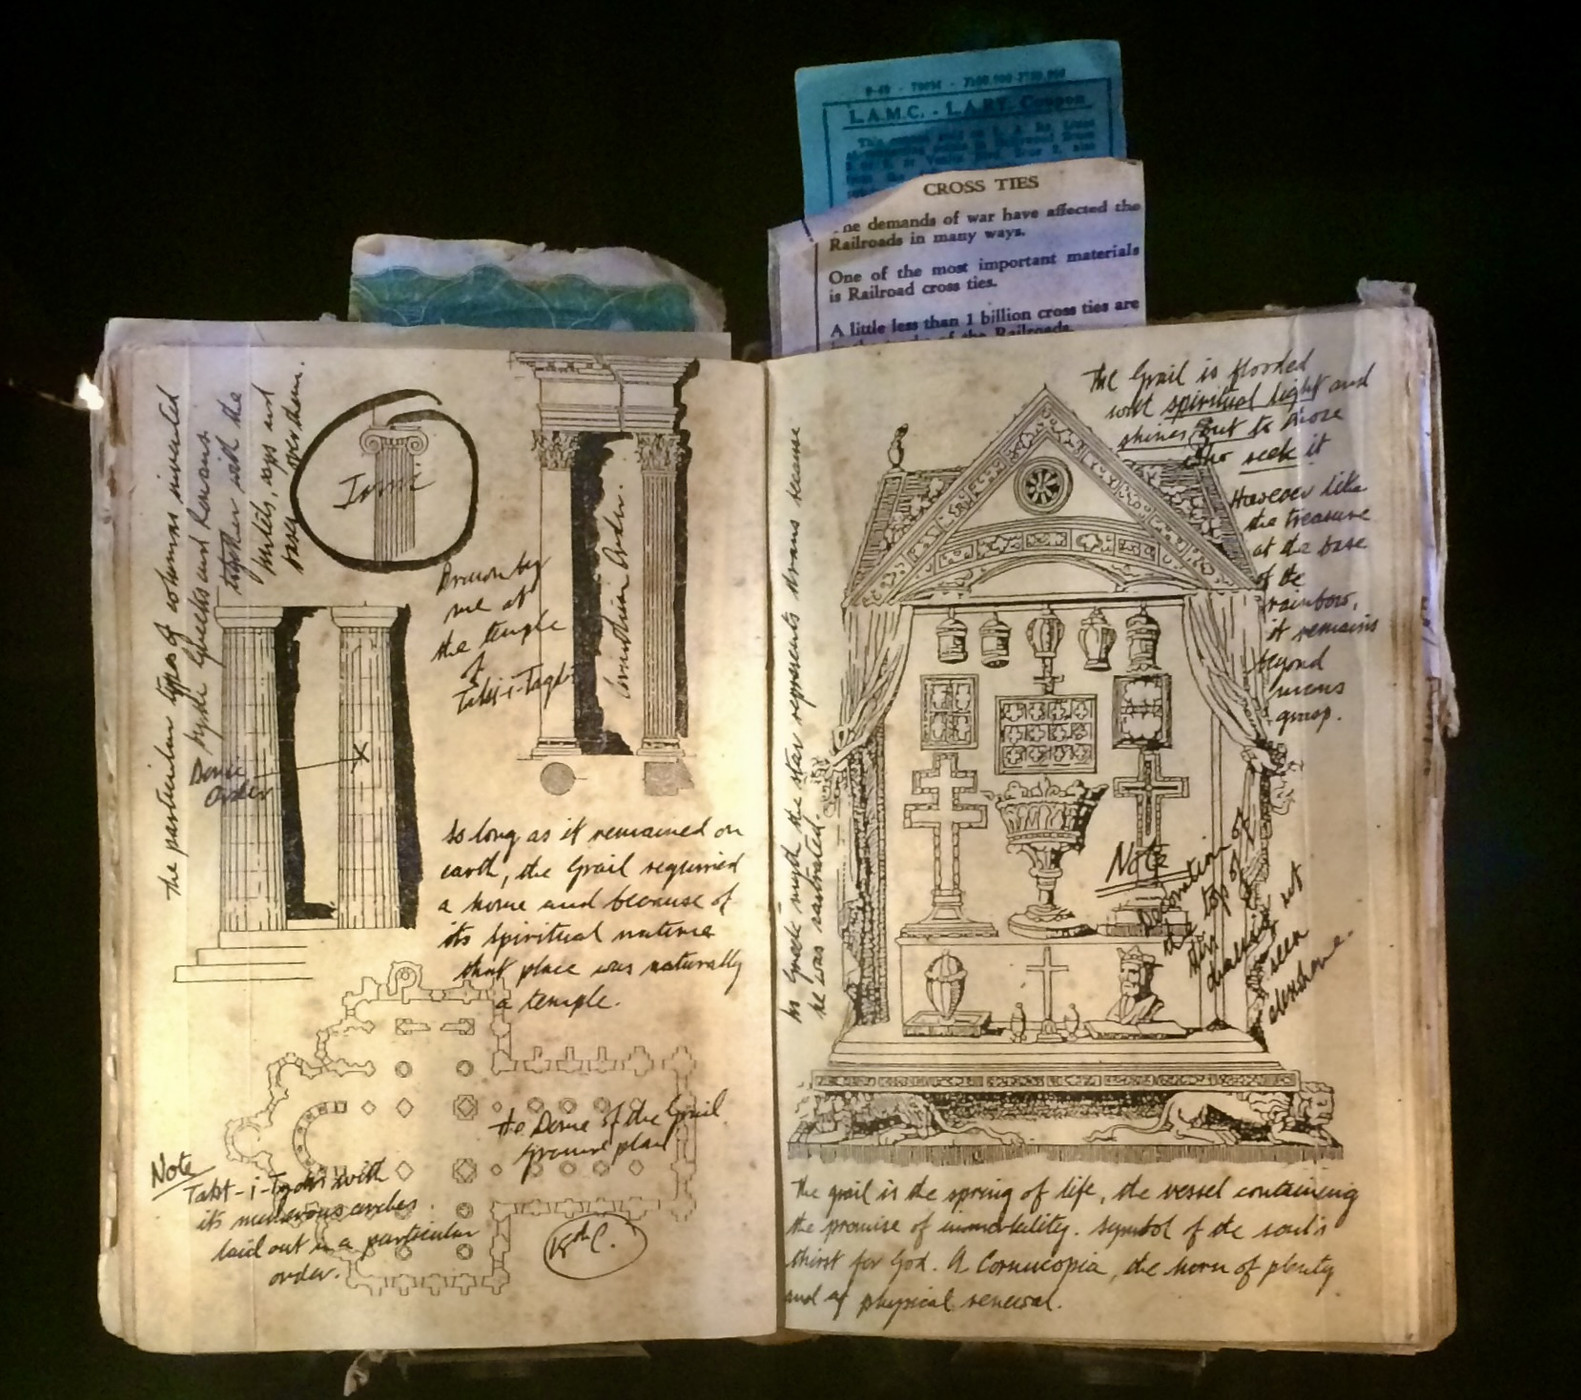 L.A.M.C. - L.A.RY. Coupon
CROSS TIES
he demands of war have affected the
Railroads in many ways.
One of the most important materials
is Railroad cross ties.
A little less than 1 billion cross ties are
of the Railroads.
the particular types of columns invented
by the Greeks and Romans
together with the
lintels, ways and
over them.
Ionic
Drawn by
me at
the temple
of
Corinthian Order.
Doric
Order
So long as it remained on
earth, the Grail required
a home and because of
its spiritual nature
that place was naturally
a temple.
the Dome of the Grail
Ground plan
Note
its numerous arches
laid out in a particular
order.
18th C.
In Greek myth the star represents
he was
the Grail is flooded
with spiritual light and
shines but to those
who seek it
However like
the treasure
at the base
of the
rainbow,
it remains
beyond
mens
grasp.
Note
Decoration of
the top of
this
not
seen
elsewhere.
the grail is the spring of life, the vessel containing
the promise of immortality. Symbol of the soul's
thirst for God. A Cornucopia, the horn of plenty
and of physical renewal.